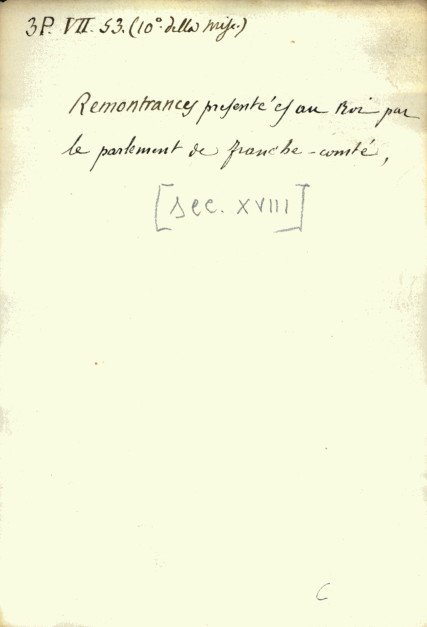 3P. VII. 53. (10°. della Misc.)
Remontrances presentées au Roi par
le parlement de franche-comté,
[sec. XVIII]
C